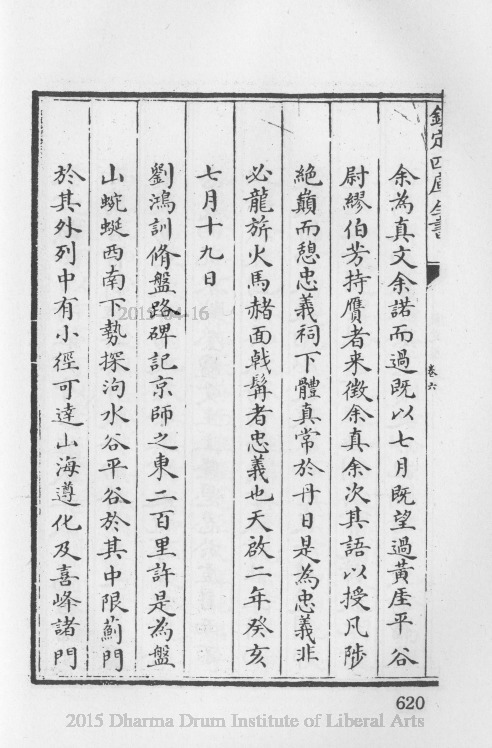 欽定四庫全書
卷六
余為真文余諾而過既以七月既望過黃厓平谷
尉繆伯芳持贗者来徵余真余次其語以授凡陟
絶巔而憩忠義祠下體真常於丹日是為忠義非
必龍旂火馬赭面戟髯者忠義也天啟二年癸亥
七月十九日
劉鴻訓脩盤路碑記京師之東二百里許是為盤
山蜿蜒西南下勢探泃水谷平谷於其中限薊門
於其外列中有小徑可達山海遵化及喜峰諸門
2015-04-16
620
2015 Dharma Drum Institute of Liberal Arts